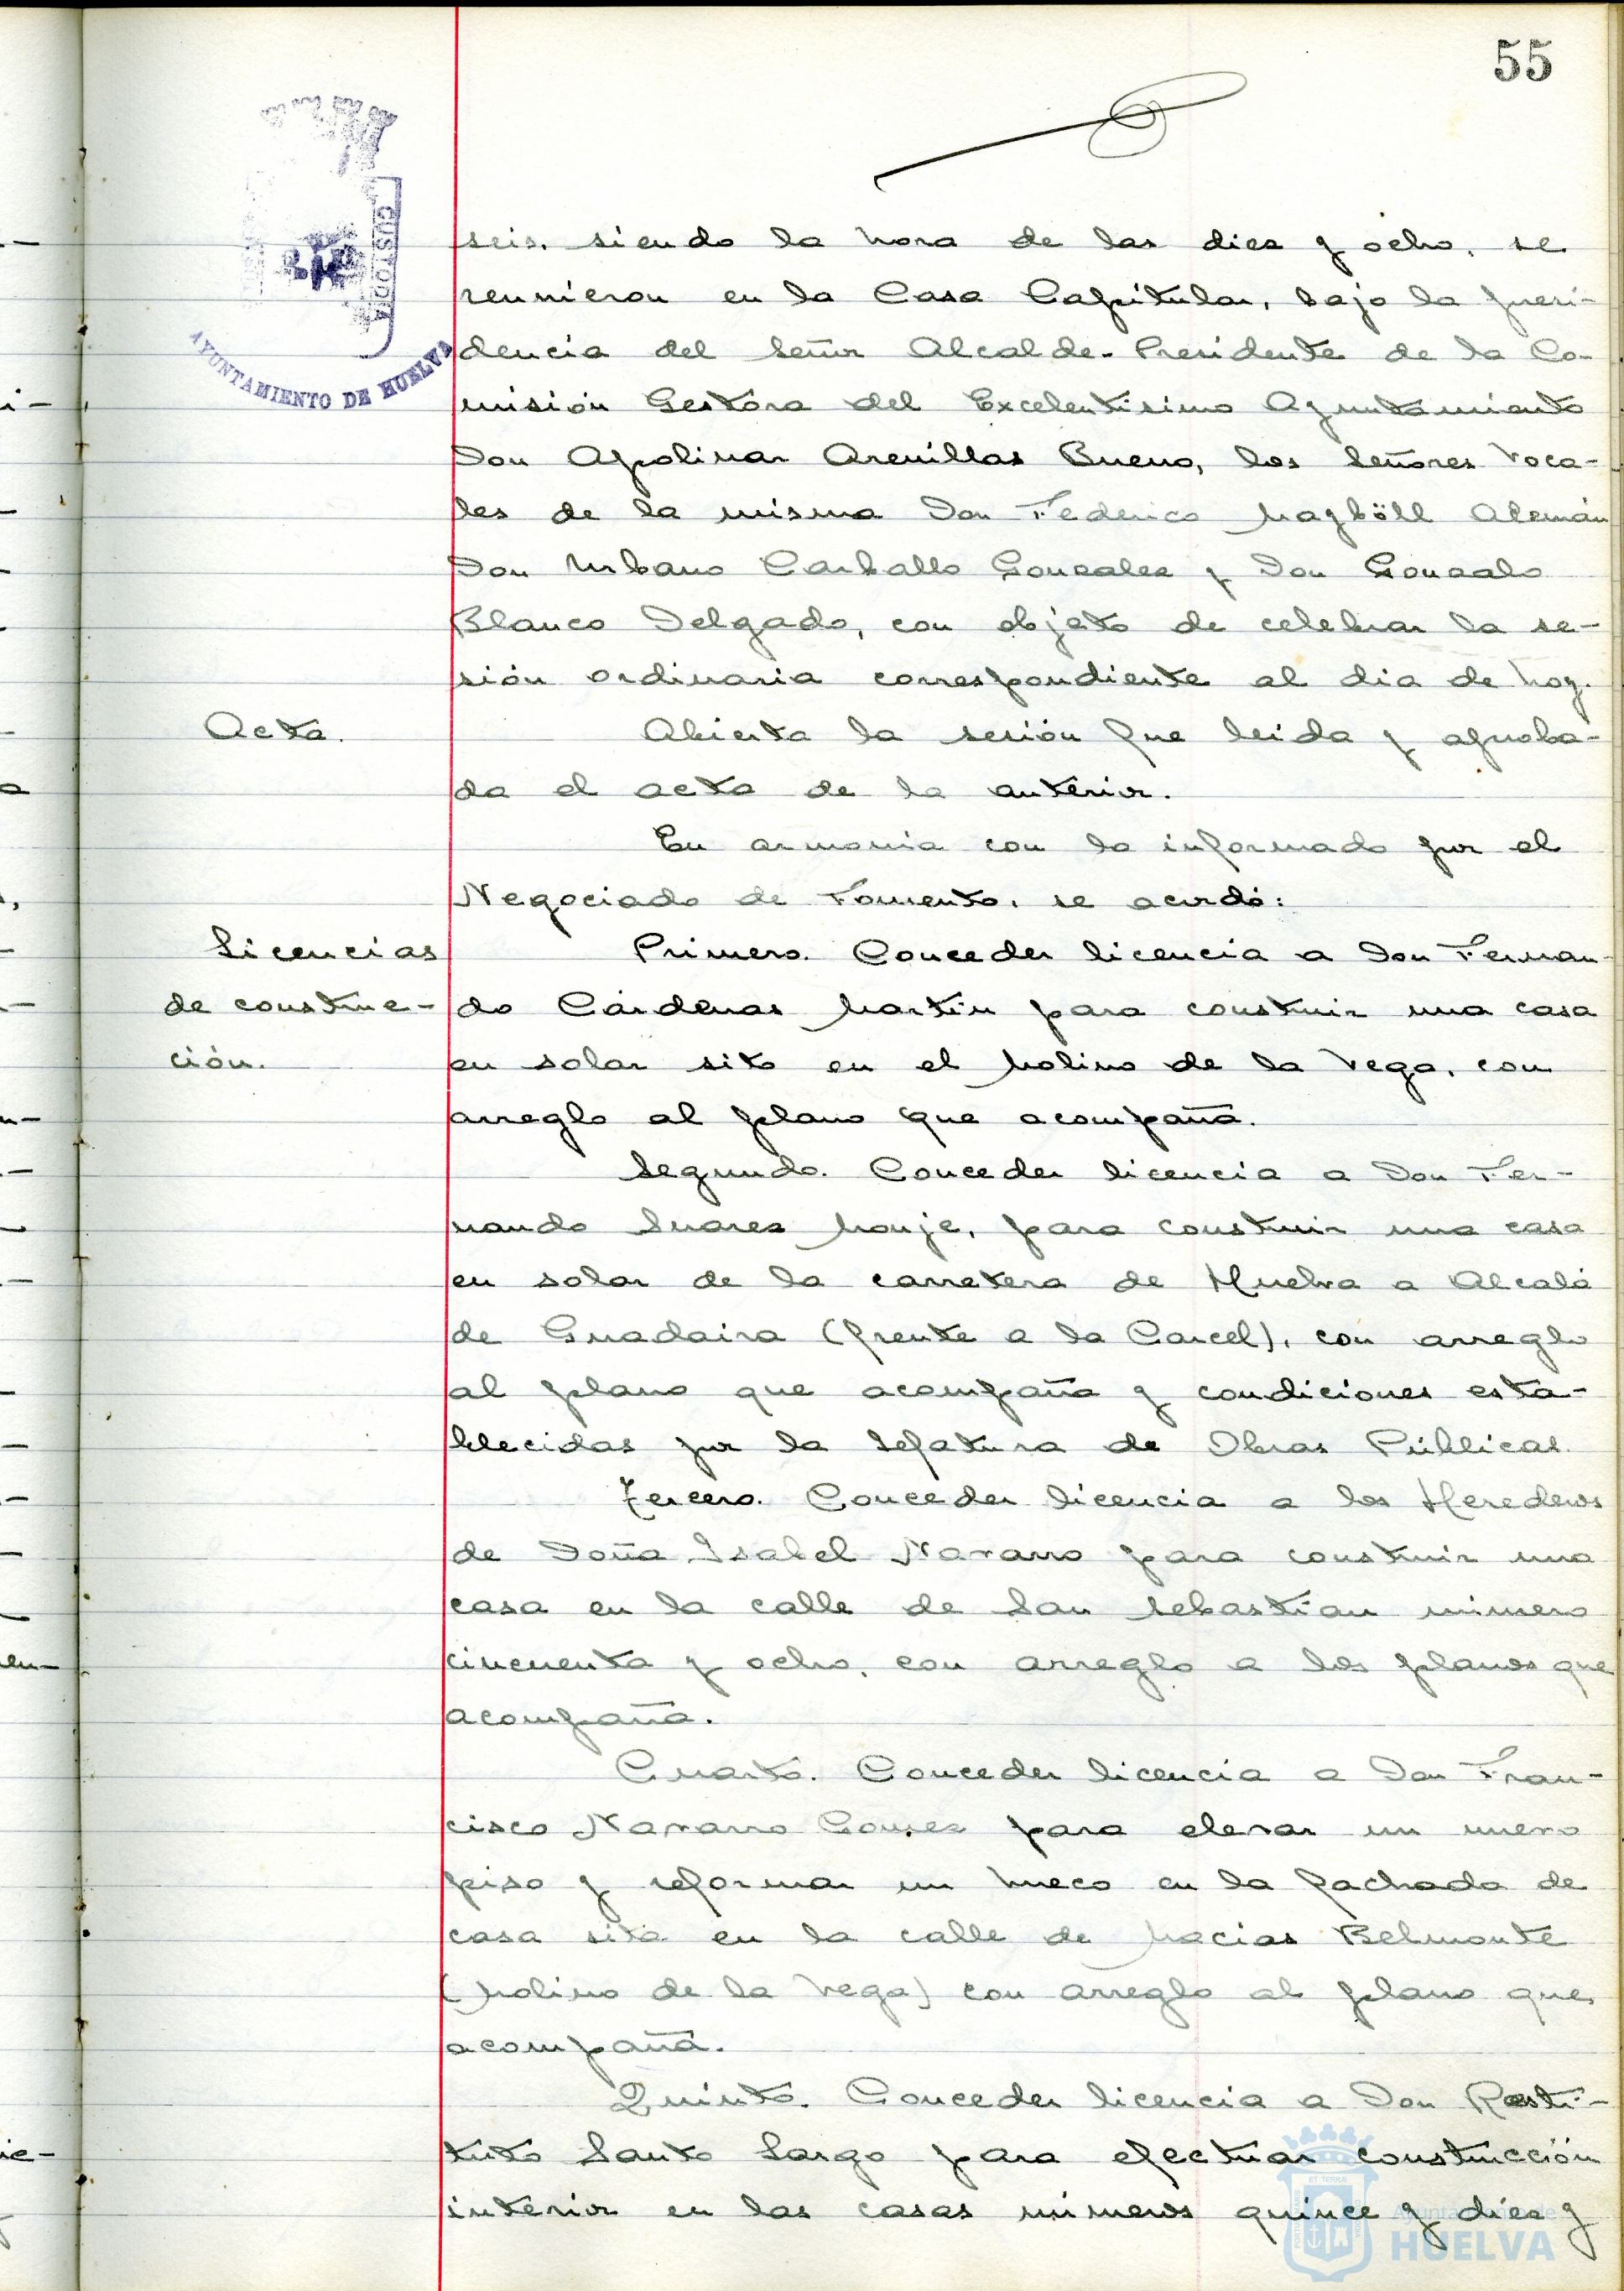 55
CUSTODIA
AYUNTAMIENTO DE HUELVA
seis, siendo la hora de las diez y ocho, se
reunieron en la Casa Capitular, bajo la presi-
dencia del Señor Alcalde-Presidente de la Co-
misión Gestora del Excelentísimo Ayuntamiento
Don Apolinar Arenillas Bueno, los Señores Voca-
les de la misma Don Federico Mayböll Alemán
Don Urbano Carballo Gonzalez y Don Gonzalo
Blanco Delgado, con objeto de celebrar la se-
sión ordinaria correspondiente al dia de hoy.
Acta.
Abierta la sesión fue leida y aproba-
da el acta de la anterior.
En armonia con lo informado por el
Negociado de Fomento, se acordó:
Licencias
de construc-
ción.
Primero. Conceder licencia a Don Fernan-
do Cárdenas Martín para construir una casa
en solar sito en el Molino de la Vega, con
arreglo al plano que acompaña.
Segundo. Conceder licencia a Don Fer-
nando Suarez Monje, para construir una casa
en solar de la carretera de Huelva a Alcalá
de Guadaira (frente a la Carcel), con arreglo
al plano que acompaña y condiciones esta-
blecidas por la Jefatura de Obras Públicas.
Tercero. Conceder licencia a los Herederos
de Doña Isabel Navarro para construir una
casa en la calle de San Sebastián número
cincuenta y ocho, con arreglo a los planos que
acompaña.
Cuarto. Conceder licencia a Don Fran-
cisco Navarro Gomez para elevar un nuevo
piso y reformar un hueco en la fachada de
casa sita en la calle de Macias Belmonte
(Molino de la Vega) con arreglo al plano que
acompaña.
Quinto. Conceder licencia a Don Resti-
tuto Santo Largo para efectuar construcción
interior en las casas números quince y diez y
Ayuntamiento de
HUELVA